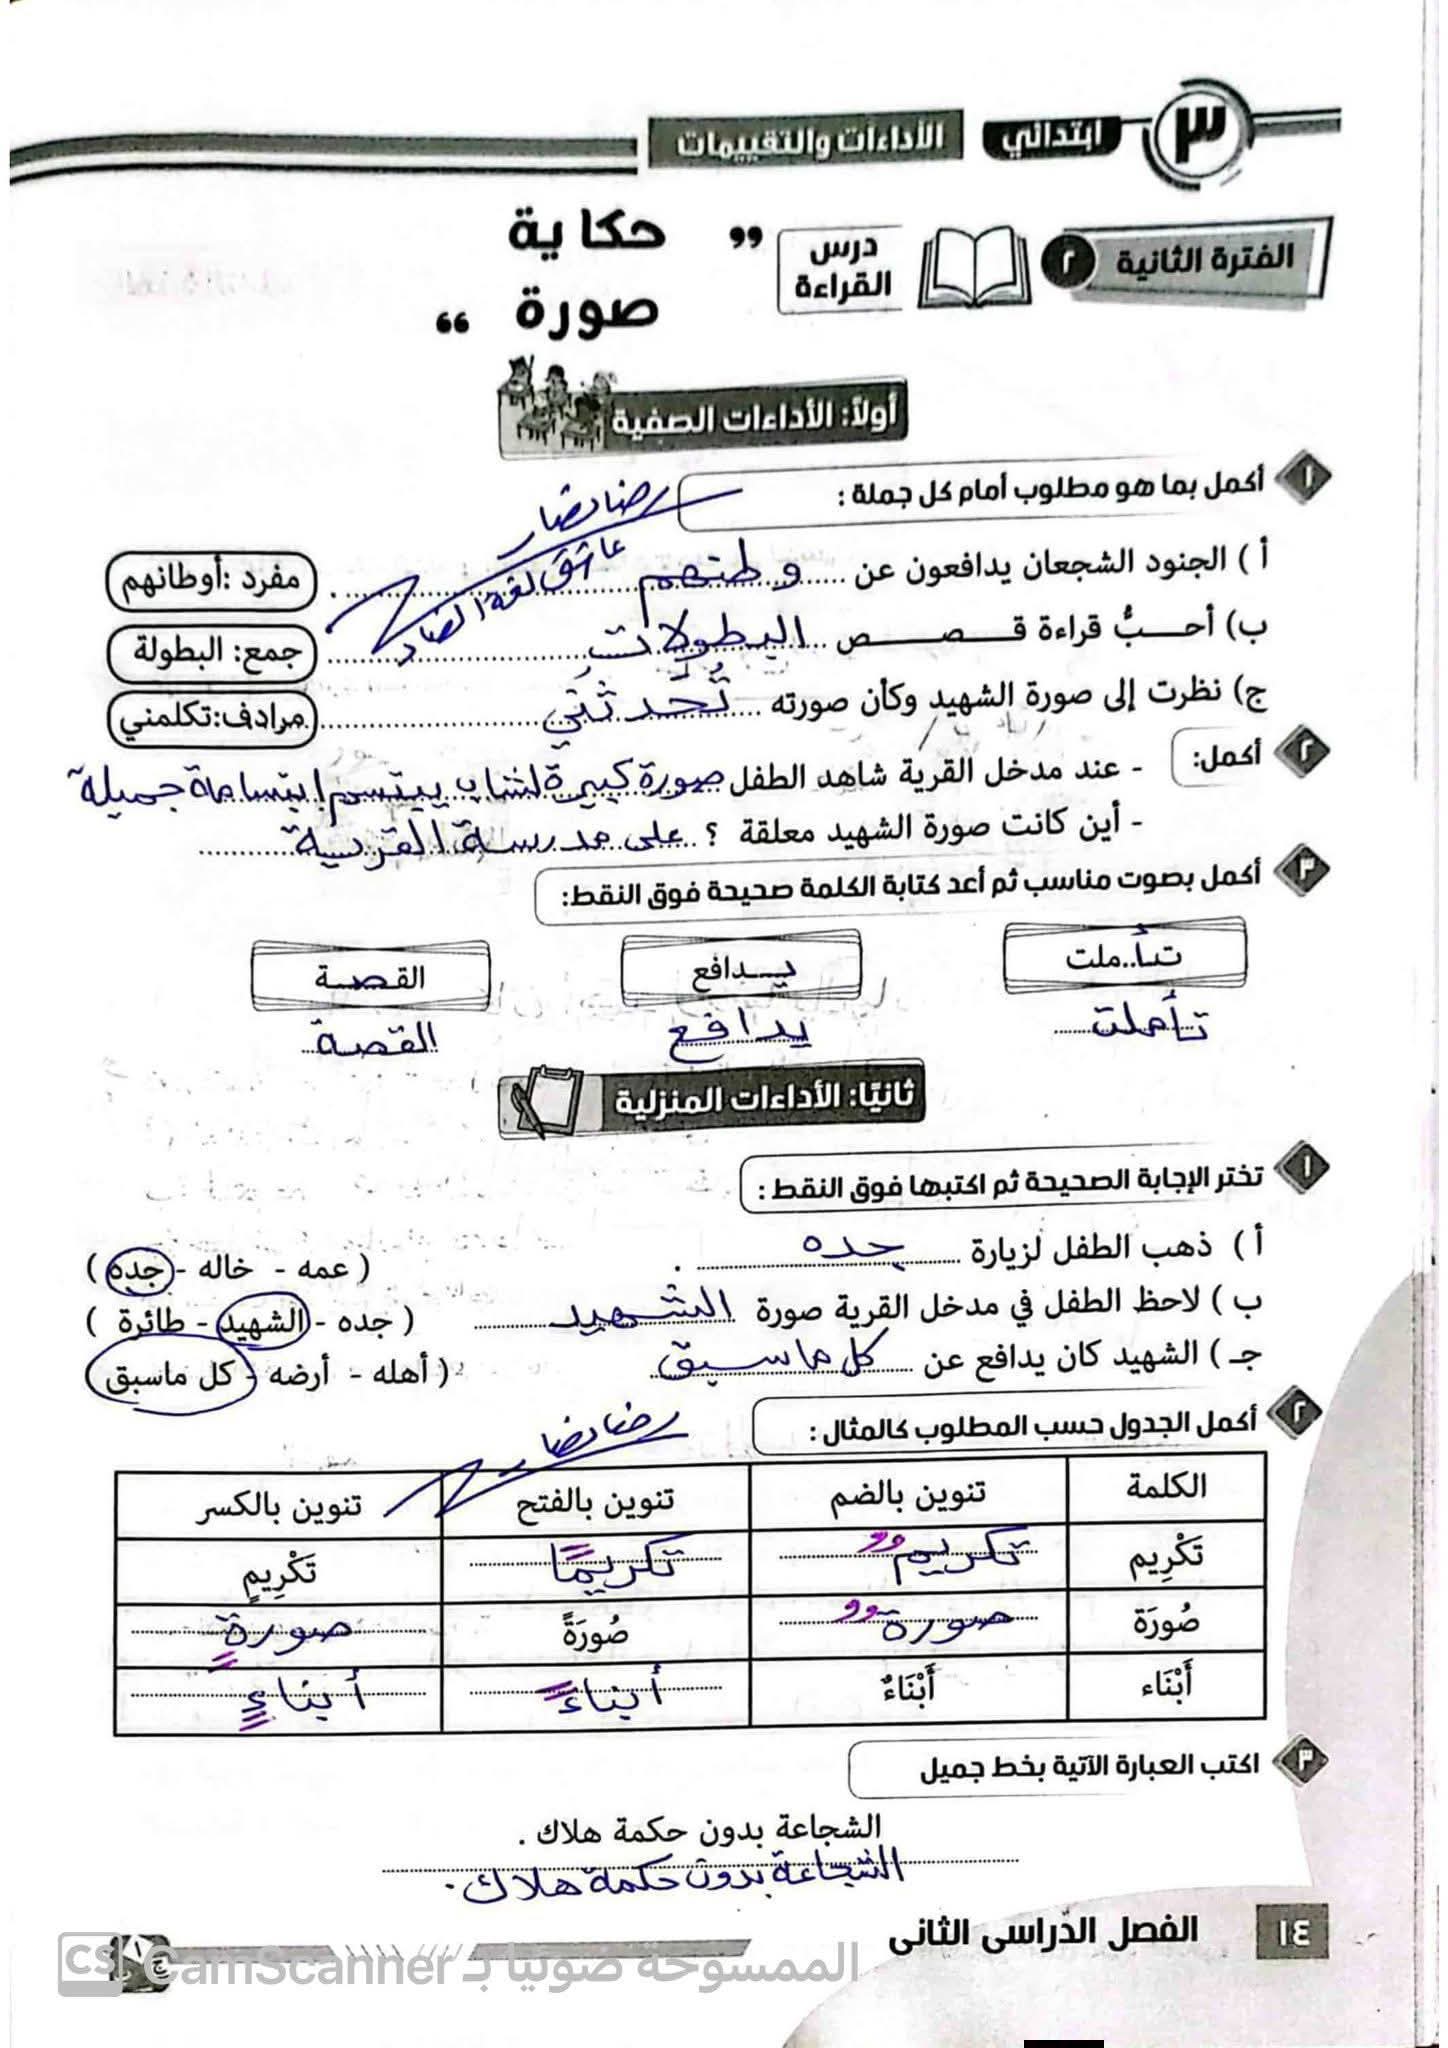 ٣ ابتدائي الأداءات والتقييمات
الفترة الثانية ٢ درس القراءة " حكاية صورة "
أولاً: الأداءات الصفية
١ أكمل بما هو مطلوب أمام كل جملة :
رضا نضار
عاشق لغة الضاد
أ ) الجنود الشجعان يدافعون عن وطنهم . مفرد :أوطانهم
ب) أحبُّ قراءة قصص البطولات جمع: البطولة
ج) نظرت إلى صورة الشهيد وكأن صورته تُحَدثُني مرادف:تكلمني
٢ أكمل: - عند مدخل القرية شاهد الطفل صورة كبيرة لشاب يبتسم ابتسامة جميلة
- أين كانت صورة الشهيد معلقة ؟ على مدرسة القرية
٣ أكمل بصوت مناسب ثم أعد كتابة الكلمة صحيحة فوق النقط:
تأملت يدافع القصة
تأملت يدافع القصة
ثانيًا: الأداءات المنزلية
١ تختر الإجابة الصحيحة ثم اكتبها فوق النقط :
أ ) ذهب الطفل لزيارة جده . ( عمه - خاله - جده )
ب ) لاحظ الطفل في مدخل القرية صورة الشهيد ( جده - الشهيد - طائرة )
جـ ) الشهيد كان يدافع عن كل ما سبق ( أهله - أرضه - كل ماسبق )
٢ أكمل الجدول حسب المطلوب كالمثال :
رضا نضار
الكلمة تنوين بالضم تنوين بالفتح تنوين بالكسر
تَكْرِيم تكريمٌ تكريمًا تَكْرِيمٍ
صُورَة صورةٌ صُورَةً صورةٍ
أَبْنَاء أَبْنَاءٌ أبناءً أبناءٍ
٣ اكتب العبارة الآتية بخط جميل
الشجاعة بدون حكمة هلاك .
الشجاعة بدون حكمة هلاك .
١٤ الفصل الدراسى الثانى
الممسوحة ضوئيا بـ CamScanner
CS